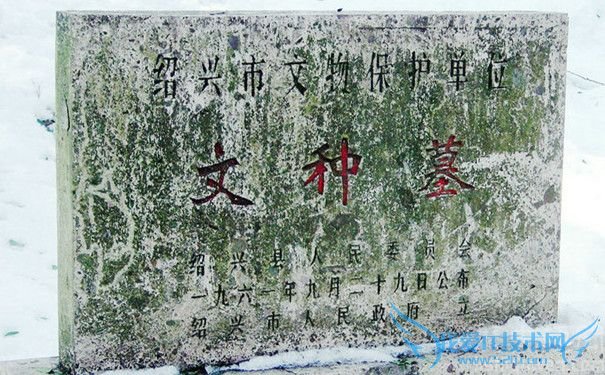 绍兴市文物保护单位
文种墓
绍兴县人民委员会
一九六一年九月二十九日公布
绍兴市人民政府立